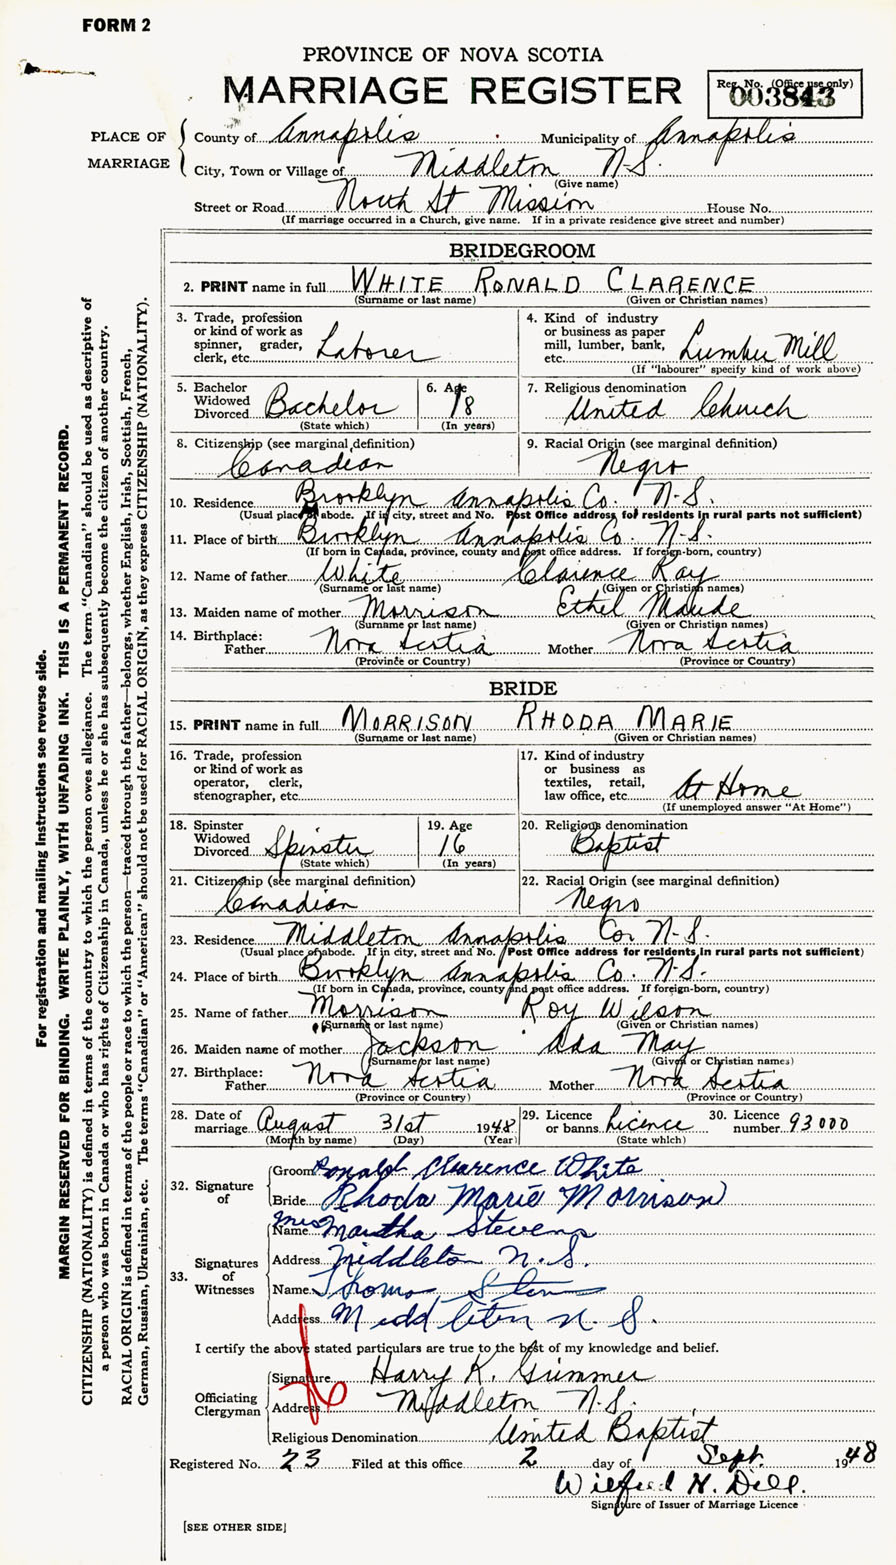 FORM 2
PROVINCE OF NOVA SCOTIA
MARRIAGE REGISTER
Reg. No. (Office use only)
003843
PLACE OF MARRIAGE
County of Annapolis Municipality of Annapolis
City, Town or Village of Middleton N-S.
(Give name)
Street or Road North St Mission House No.
(If marriage occurred in a Church, give name. If in a private residence give street and number)
BRIDEGROOM
2. PRINT name in full WHITE RONALD CLARENCE
(Surname or last name) (Given or Christian names)
3. Trade, profession or kind of work as spinner, grader, clerk, etc. Laborer
4. Kind of industry or business as paper mill, lumber, bank, etc. Lumber Mill
(If "labourer" specify kind of work above)
5. Bachelor Widowed Divorced Bachelor
(State which)
6. Age 18
(In years)
7. Religious denomination
United Church
8. Citizenship (see marginal definition)
Canadian
9. Racial Origin (see marginal definition)
Negro
10. Residence Brooklyn Annapolis Co. N-S.
(Usual place of abode. If in city, street and No. Post Office address for residents in rural parts not sufficient)
11. Place of birth Brooklyn Annapolis Co. N-S.
(If born in Canada, province, county and post office address. If foreign-born, country)
12. Name of father White Clarence Ray
(Surname or last name) (Given or Christian names)
13. Maiden name of mother Morrison Ethel Maude
(Surname or last name) (Given or Christian names)
14. Birthplace:
Father Nova Scotia Mother Nova Scotia
(Province or Country) (Province or Country)
BRIDE
15. PRINT name in full MORRISON RHODA MARIE
(Surname or last name) (Given or Christian names)
16. Trade, profession or kind of work as operator, clerk, stenographer, etc.
17. Kind of industry or business as textiles, retail, law office, etc. At Home
(If unemployed answer "At Home")
18. Spinster Widowed Divorced Spinster
(State which)
19. Age
16
(In years)
20. Religious denomination
Baptist
21. Citizenship (see marginal definition)
Canadian
22. Racial Origin (see marginal definition)
Negro
23. Residence Middleton Annapolis Co. N-S.
(Usual place of abode. If in city, street and No. Post Office address for residents in rural parts not sufficient)
24. Place of birth Brooklyn Annapolis Co. N-S.
(If born in Canada, province, county and post office address. If foreign-born, country)
25. Name of father Morrison Roy Wilson
(Surname or last name) (Given or Christian names)
26. Maiden name of mother Jackson Ada May
(Surname or last name) (Given or Christian names)
27. Birthplace:
Father Nova Scotia Mother Nova Scotia
(Province or Country) (Province or Country)
28. Date of marriage August 31st 1948
(Month by name) (Day) (Year)
29. Licence or banns Licence
(State which)
30. Licence number 93000
32. Signature of
Groom Ronald Clarence White
Bride Rhoda Marie Morrison
33. Signatures of Witnesses
Name Mrs Martha Stevens
Address Middleton N.S.
Name Thomas
Address Middleton N. S.
I certify the above stated particulars are true to the best of my knowledge and belief.
Officiating Clergyman
Signature Harry K. Grimmer
Address Middleton N.S.
Religious Denomination United Baptist
Registered No. 23 Filed at this office 2 day of Sept. 1948
Wilfred N. Dill.
Signature of Issuer of Marriage Licence
[SEE OTHER SIDE]
For registration and mailing instructions see reverse side.
MARGIN RESERVED FOR BINDING. WRITE PLAINLY, WITH UNFADING INK. THIS IS A PERMANENT RECORD.
CITIZENSHIP (NATIONALITY) is defined in terms of the country to which the person owes allegiance. The term "Canadian" should be used as descriptive of
a person who was born in Canada or who has rights of Citizenship in Canada, unless he or she has subsequently become the citizen of another country.
RACIAL ORIGIN is defined in terms of the people or race to which the person—traced through the father—belongs, whether English, Irish, Scottish, French,
German, Russian, Ukrainian, etc. The terms "Canadian" or "American" should not be used for RACIAL ORIGIN, as they express CITIZENSHIP (NATIONALITY).